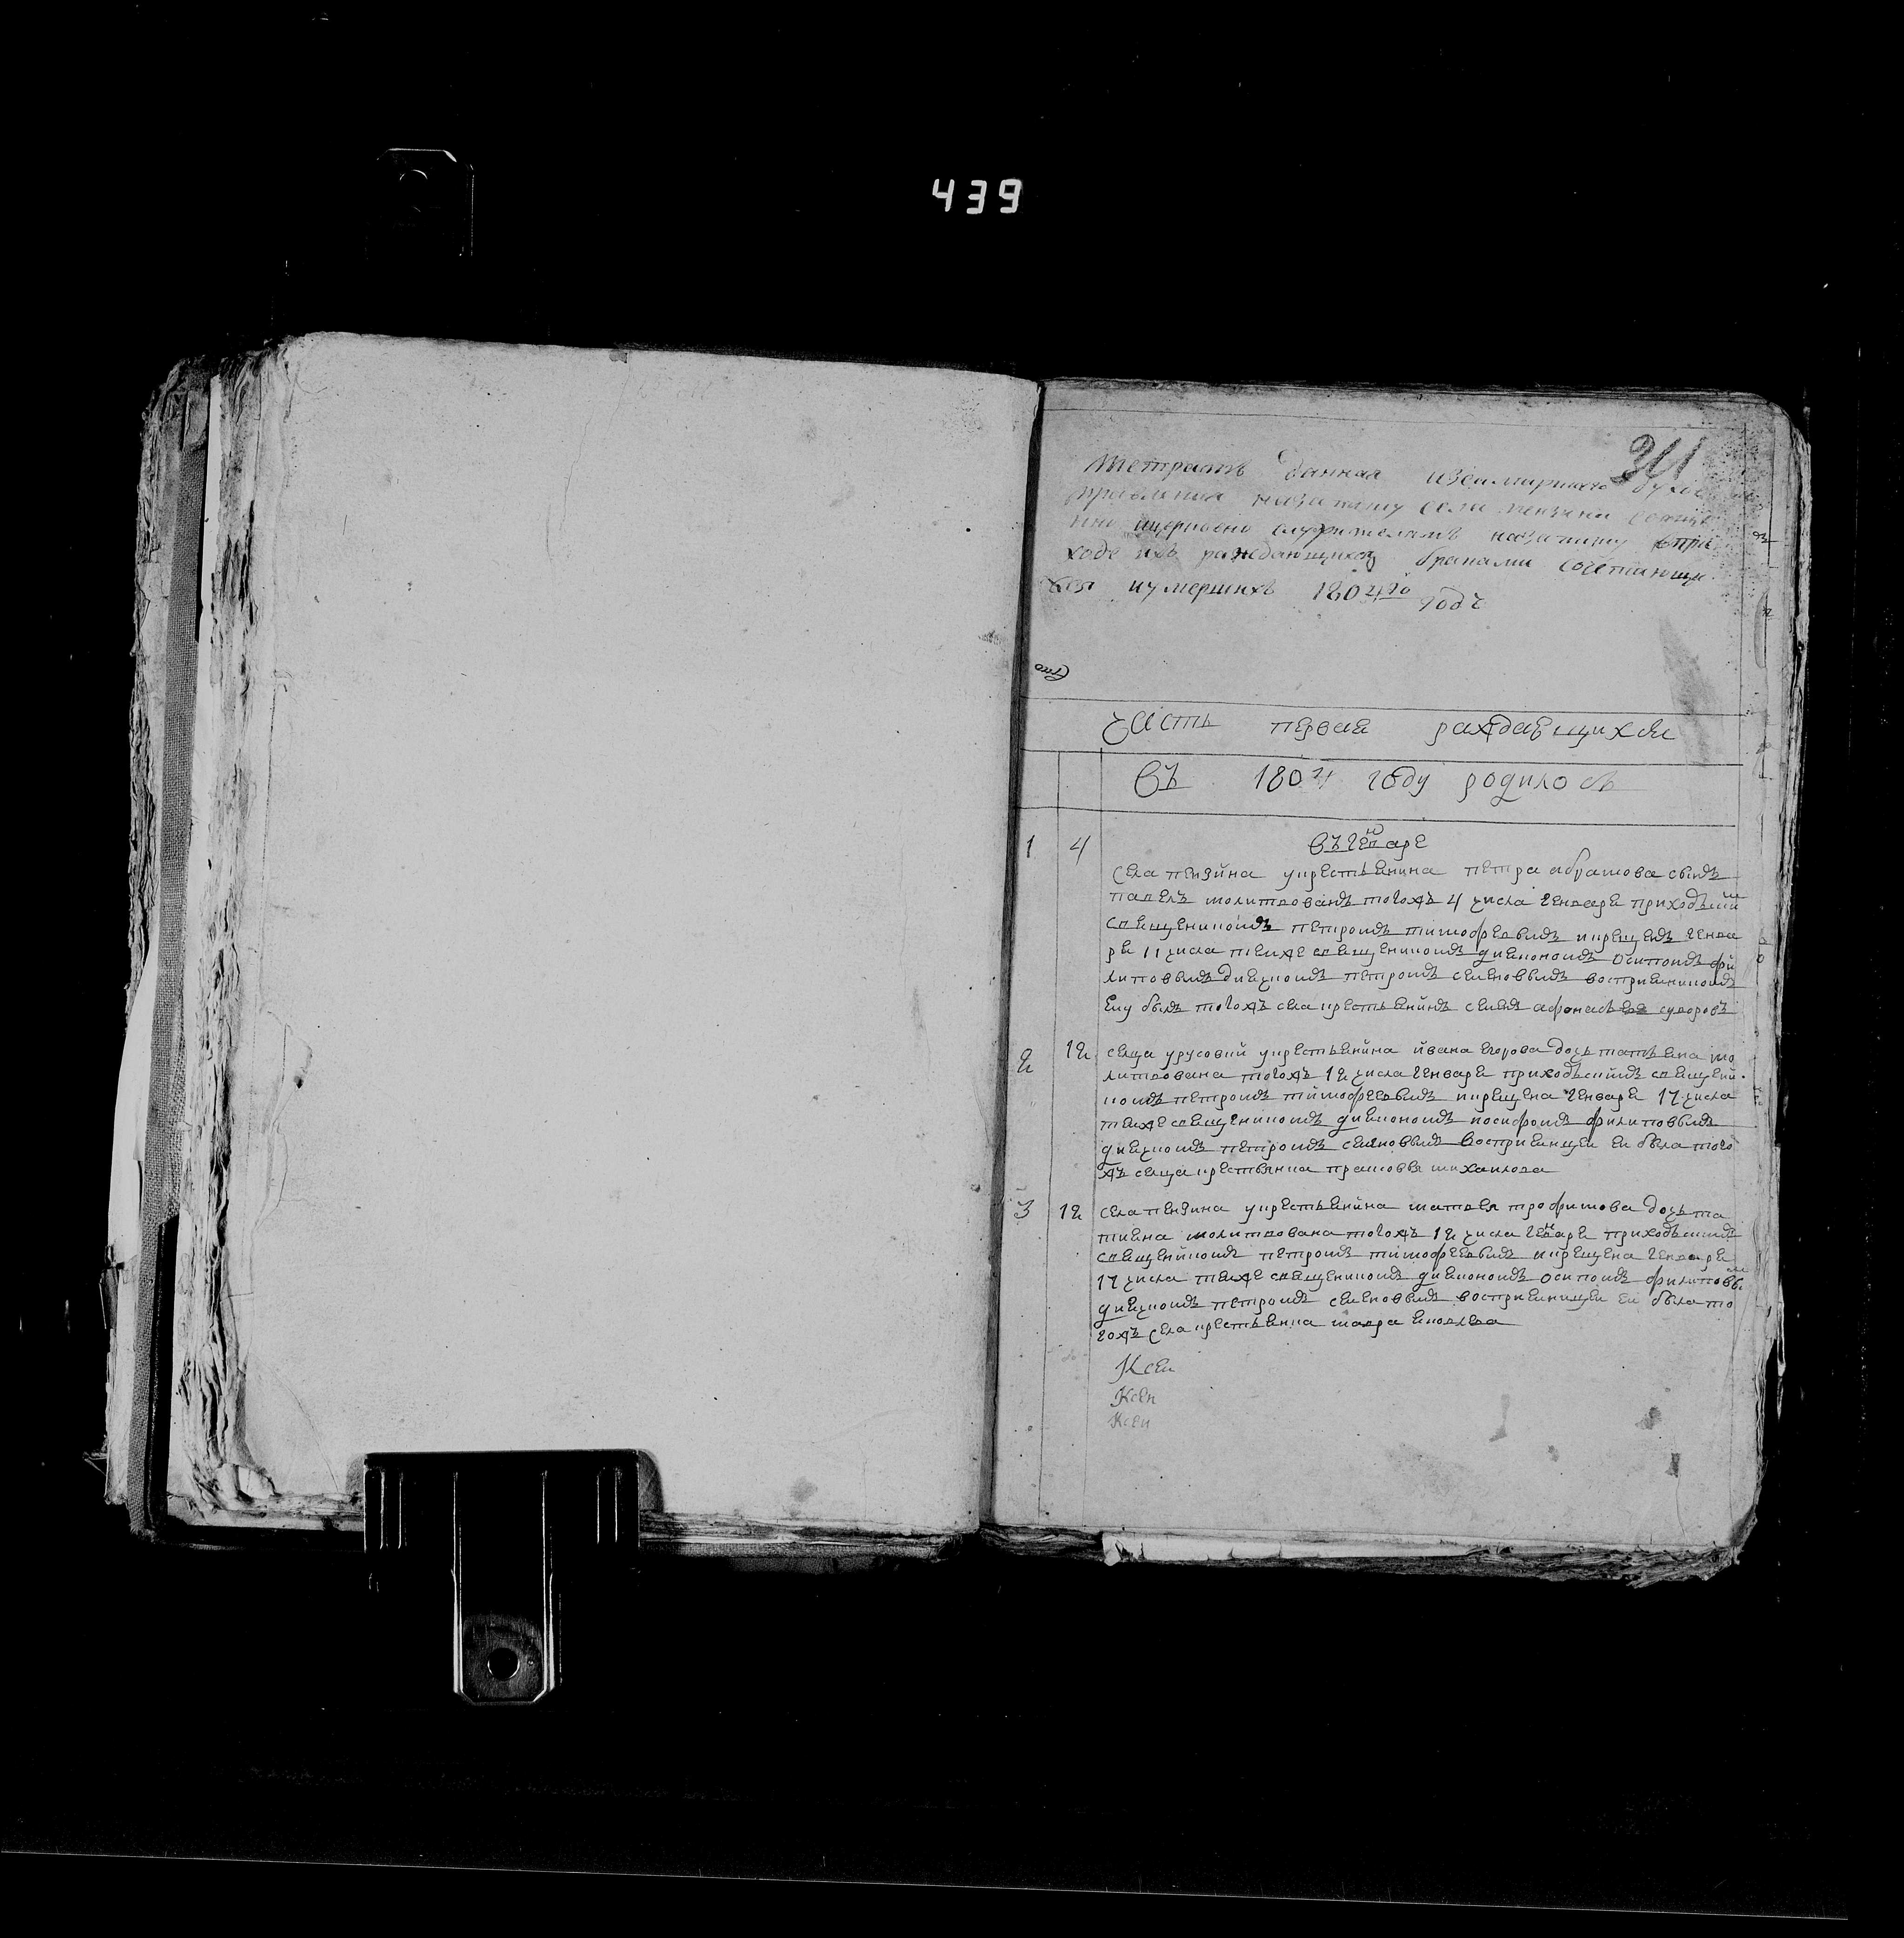 439
311
Тетрать данная изсимирнаго духов
правления назапику села пензина священ
но ицерковно служителямъ назапику вприходе
ходе ихъ раждающихся браками сочетающи
хся иумершихъ 1804го годъ
Часть первая раждаещихсяе
въ 1804 году родилось
въ генваре
1 4 села пензйна укрестьянина петра абрамова сынъ
павелъ молитвованъ тогожъ 4 числа генваря приходскимъ
священникомъ петромъ тимофеевымъ икрещенъ генва
ря 11 числа темже священникомъ диякономъ осипомъ фи
липовымъ диячкомъ петромъ семеновымъ восприемникомъ
ему былъ тогожъ села крестьянинъ семенъ афонасьевъ суворовъ
2 12 селца урусовки укрестьянина йвана егорова дочь татьяна мо
литвована тогожъ 12 числа генваря приходскимъ священни
комъ петромъ тимофеевымъ икрещена генваря 17 числа
темже священникомъ диякономъ иосифомъ филиповымъ
диячкомъ петромъ семеновымъ восприемницеи еи была того
жъ селца крестьянка прасковья михаилова
3 12 села пензина укрестьянина матвея трофимова дочь та
тияна молитвована тогожъ 12 числа генваря приходскимъ
священникомъ петромъ тимофеевымъ икрещена генваря
17 числа темже священникомъ диякономъ осипомъ филиповы
диячкомъ петромъ семеновымъ восприемницеи еи была то
гожъ села крестьянка мавра яковлева
Ксеи
Ксеи
Ксеи